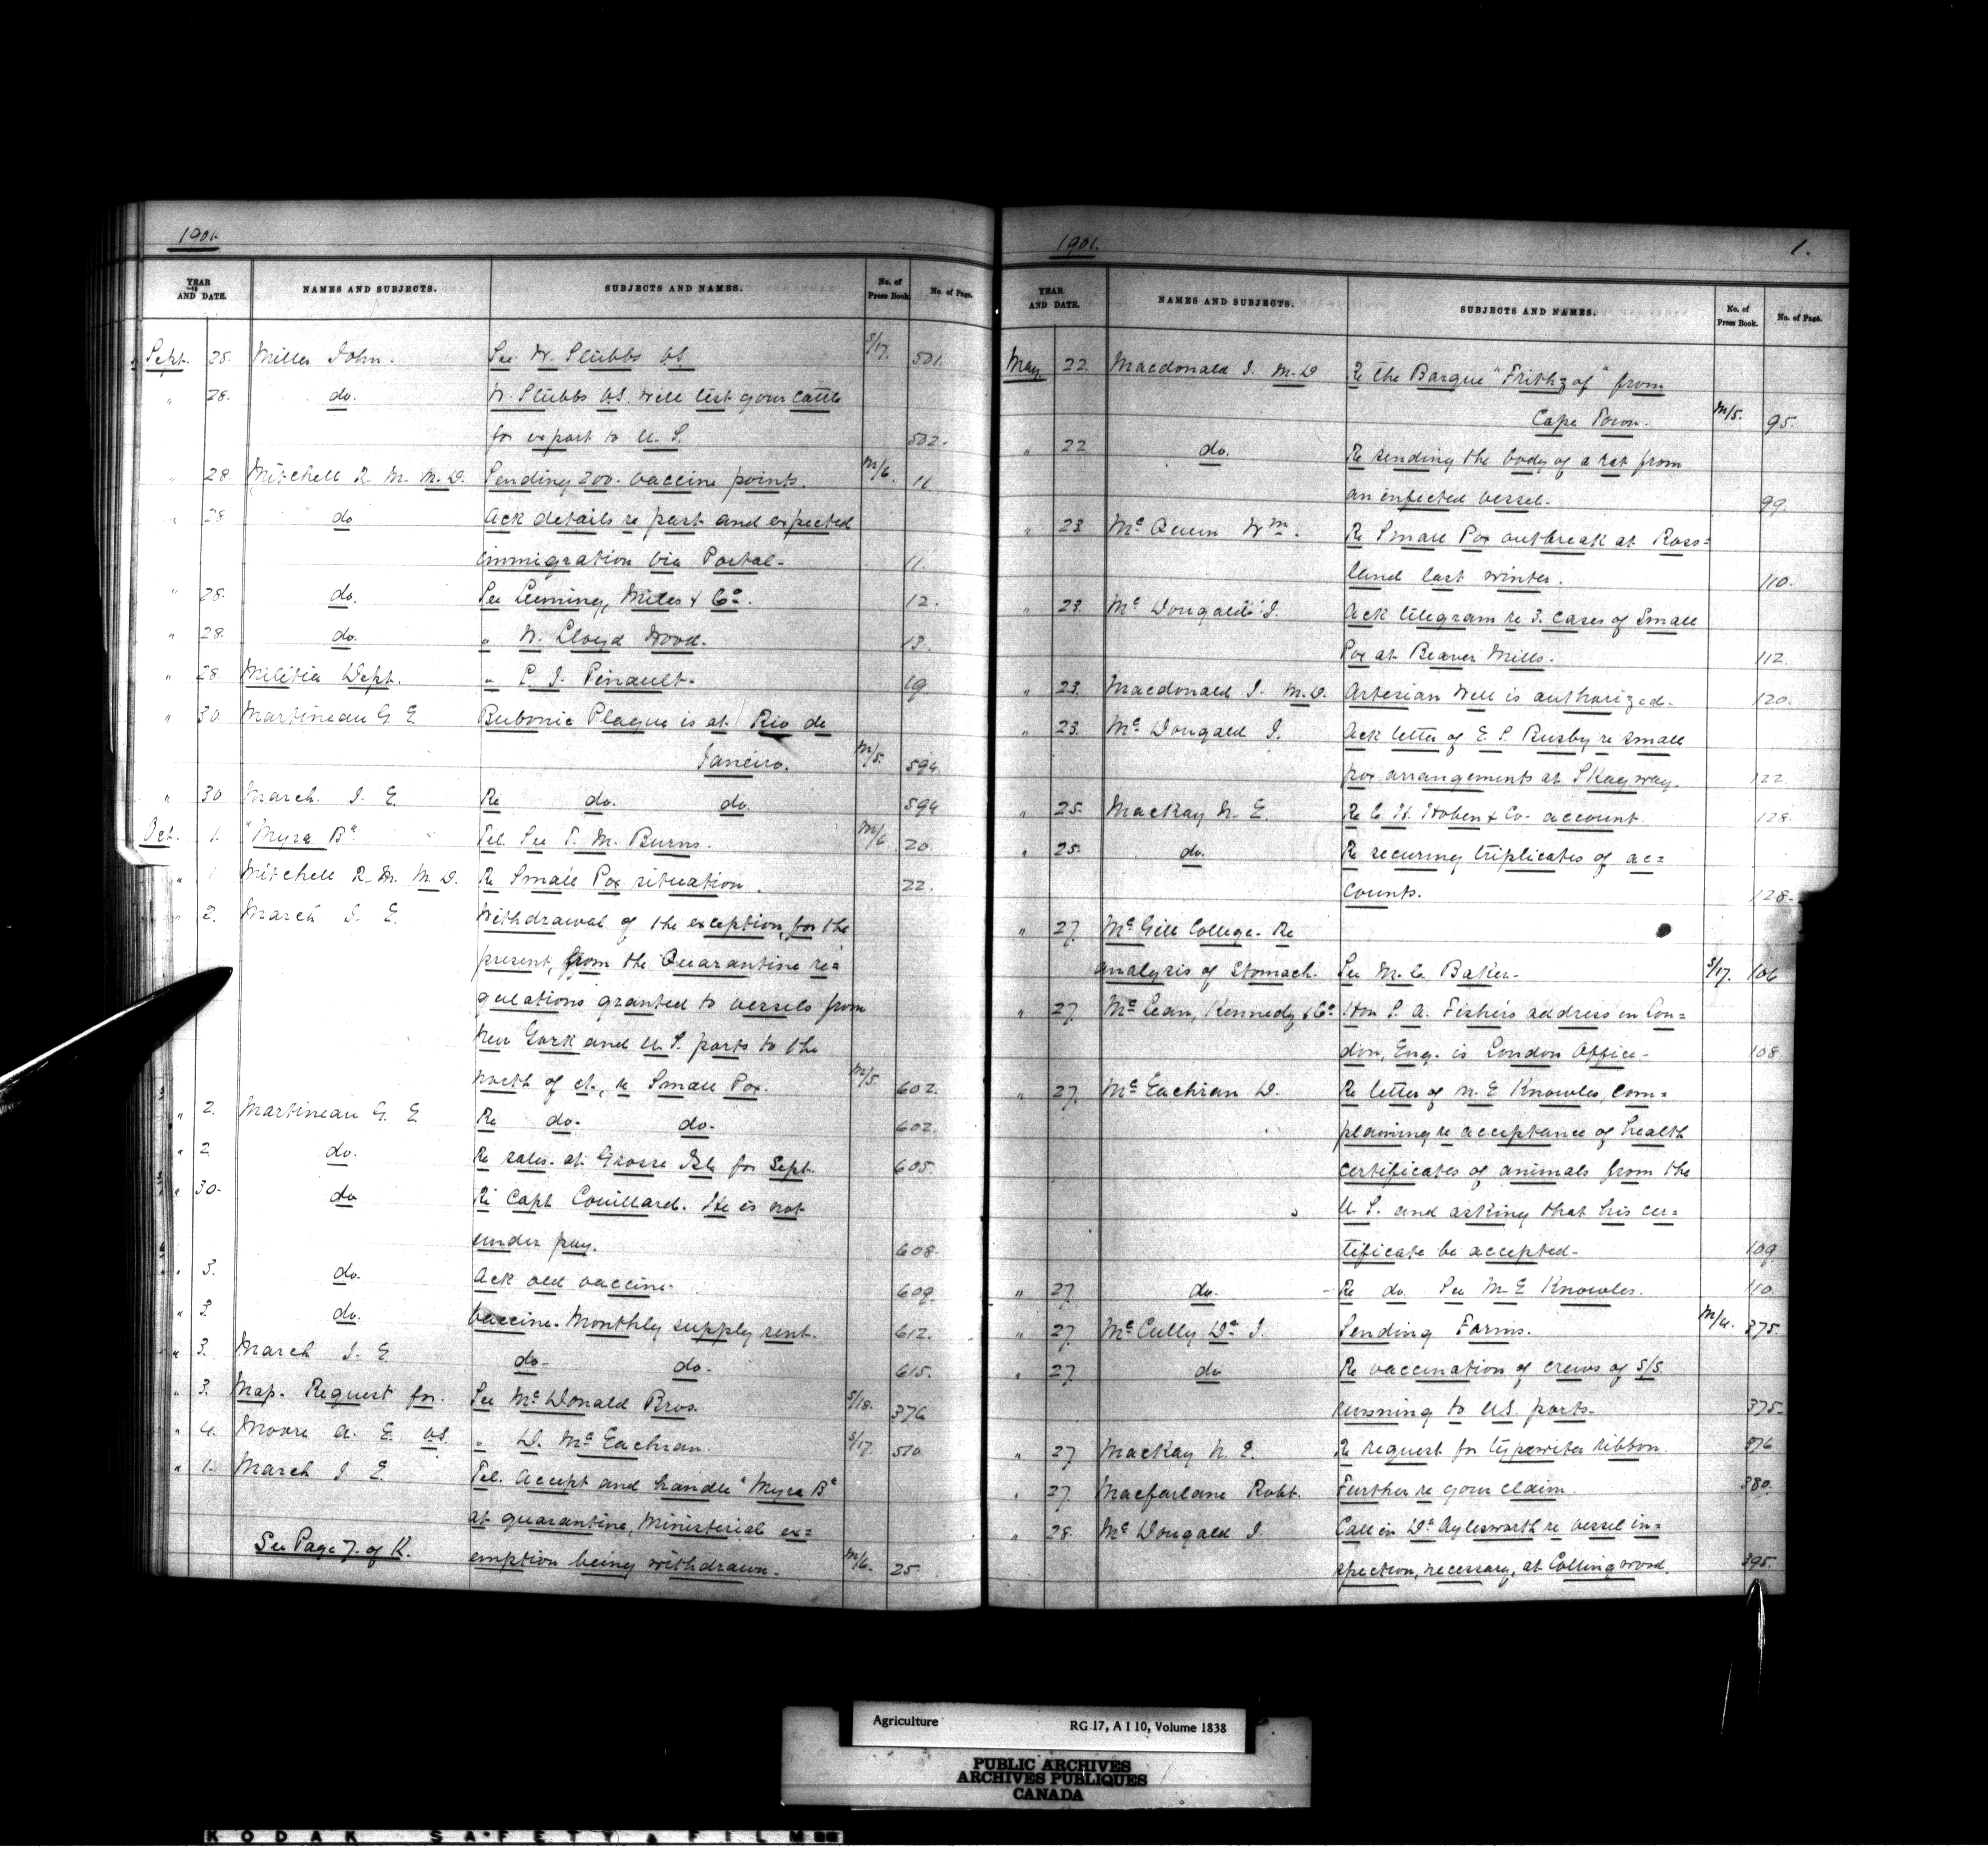 1901.
YEAR AND DATE. NAMES AND SUBJECTS. SUBJECTS AND NAMES. No. of Press Book. No. of Page.
Sept. 25. Miller John. See W. Stubbs V.S. S/17. 501.
" 28. do. W. Stubbs V.S. will test your cattle
for export to U.S. 502.
" 28. Mitchell R. M. M.D. Sending 200. vaccine points. M/6. 11.
" 28 do Ack details re past and expected
immigration via Portal. 11.
" 28. do. See Leeming, Miles & Co. 12.
" 28. do. " W. Lloyd Wood. 13.
" 28. Militia Dept. " L. J. Pinault. 19.
" 30. Martineau G. E. Bubonic Plague is at Rio de
Janeiro. M/5. 594.
" 30 March. J. E. Re do. do. 594.
Oct. 1. "Myra B" Tel. See T. M. Burns. M/6 20.
" 1. Mitchell R. M. M.D. Re Small Pox situation. 22.
" 2. March J. E. Withdrawal of the exception, for the
present, from the Quarantine re=
gulations granted to vessels from
New York and U.S. ports to the
north of it, re Small Pox. M/5. 602.
" 2. Martineau G. E Re do. do. 602.
" 2 do. Re sales. at Grosse Isle for Sept. 605.
" 30. do Re Capt Couillard. He is not
under pay. 608.
" 3. do. Ack old vaccine. 609.
" 3 do. Vaccine. Monthly supply sent. 612.
" 3. March J. E. do. do. 615.
" 3. Map. Request for. See McDonald Bros. S/18. 376
" 4. Moore A. E. V.S. " D. McEachran. S/17. 510.
" 1. March J E. Tel. Accept and handle "Myra B"
at quarantine, Ministerial ex=
See Page 7. of K. emption being withdrawn. M/6. 25
1901. 1.
YEAR AND DATE. NAMES AND SUBJECTS. SUBJECTS AND NAMES. No. of Press Book. No. of Page.
May 22. Macdonald J. M.D Re the Barque "Frithzof" from
Cape Town. M/5. 95.
" 22 do. Re sending the body of a rat from
an infected vessel. 99.
" 23. McQueen Wm. Re Small Pox outbreak at Ross=
land last winter. 110.
" 23. McDougald J. Ack telegram re 3. cases of Small
Pox at Beaver Mills. 112.
" 23. Macdonald J. M.D. Artesian Well is authorized. 120.
" 23. McDougald J. Ack letter of E. S. Busby re small
pox arrangements at Skagway. 122.
" 25. MacKay N. E. Re C. H. Hoben & Co. account. 128.
" 25. do. Re securing triplicates of ac=
counts. 128.
" 27. McGill College. Re
analysis of Stomach. See M. C. Baker. S/17. 106
" 27. McLean, Kennedy & Co Hon S. A. Fisher's address in Lon=
don, Eng. is London Office. 108.
" 27. McEachran D. Re letter of M. E Knowles, com=
plaining re acceptance of health
certificates of animals from the
U.S. and asking that his cer=
tificate be accepted. 109
" 27. do. Re do See M. E Knowles. 110.
" 27. McCully Dr J. Sending Forms. M/4. 375.
" 27 do Re vaccination of crews of S/S.
running to U.S. ports. 375.
" 27 MacKay N. E. Re request for typewriter ribbon. 376
" 27. Macfarlane Robt. Further re your claim. 380.
" 28. McDougald J. Call in Dr Aylesworth re vessel in=
spection, necessary, at Collingwood. 395.
Agriculture RG 17, A I 10, Volume 1838
PUBLIC ARCHIVES
ARCHIVES PUBLIQUES
CANADA
KODAK SAFETY FILM